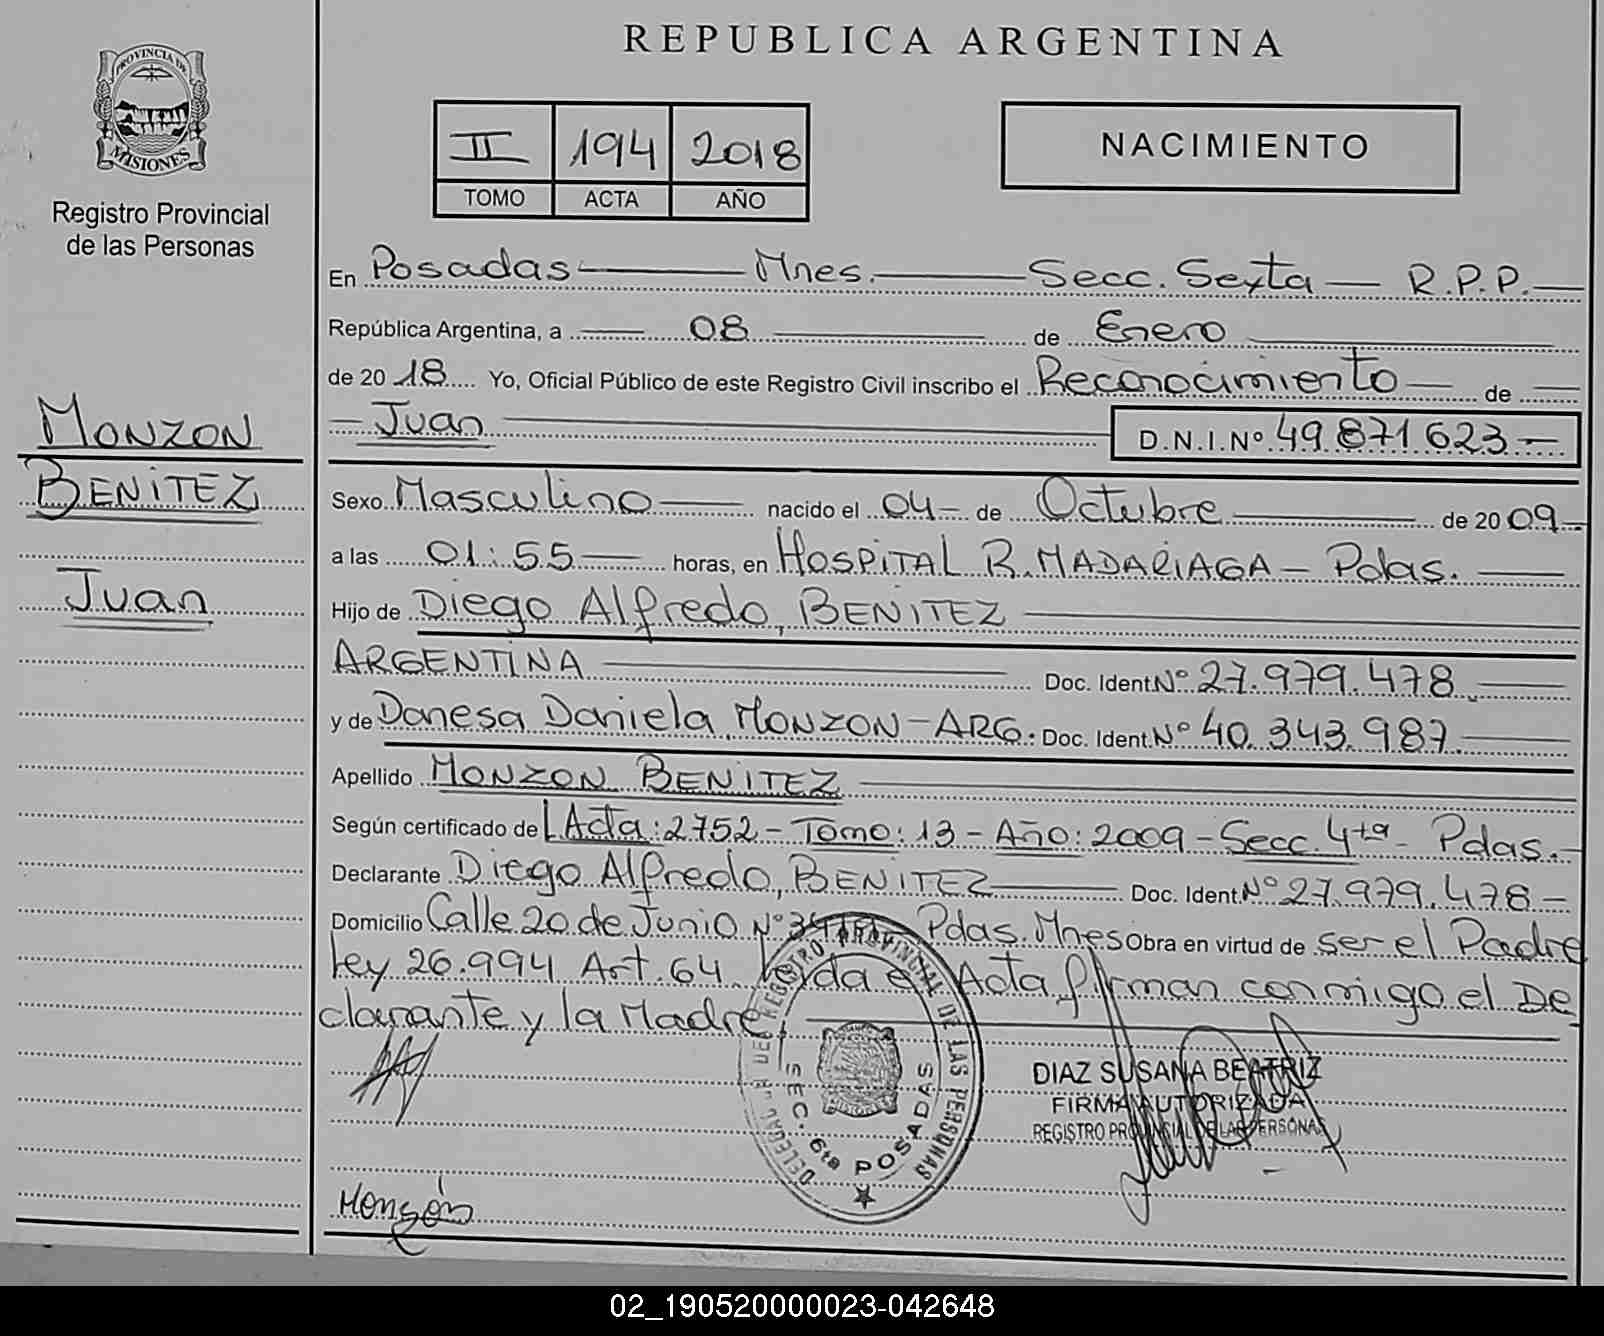 REPUBLICA ARGENTINA
PROVINCIA DE
MISIONES
Registro Provincial
de las Personas
II 194 2018
TOMO ACTA AÑO
NACIMIENTO
En Posadas Mnes. Secc. Sexta R.P.P.
República Argentina, a 08 de Enero
de 20 18 Yo, Oficial Público de este Registro Civil inscribo el Reconocimiento de
Juan D.N.I.Nº 49.871.623
MONZON
BENITEZ
Juan
Sexo Masculino nacido el 04 de Octubre de 20 09
a las 01:55 horas, en HOSPITAL R. MADARIAGA - Pdas.
Hijo de Diego Alfredo, BENITEZ
ARGENTINA Doc. Ident Nº 27.979.478
y de Danesa Daniela MONZON - ARG. Doc. Ident. Nº 40.343.987
Apellido MONZON BENITEZ
Según certificado de Acta: 2752 - Tomo: 13 - Año: 2009 - Secc. 4ta - Pdas.
Declarante Diego Alfredo, BENITEZ Doc. Ident. Nº 27.979.478
Domicilio Calle 20 de Junio Nº Pdas. Mnes Obra en virtud de ser el Padre
Ley 26.994 Art. 64. Leida el Acta firman conmigo el De
clarante y la Madre
REGISTRO PROVINCIAL DE LAS PERSONAS
SEC. 6ta POSADAS
DIAZ SUSANA BEATRIZ
FIRMA AUTORIZADA
REGISTRO PROVINCIAL DE LAS PERSONAS
Monzón
02_190520000023-042648